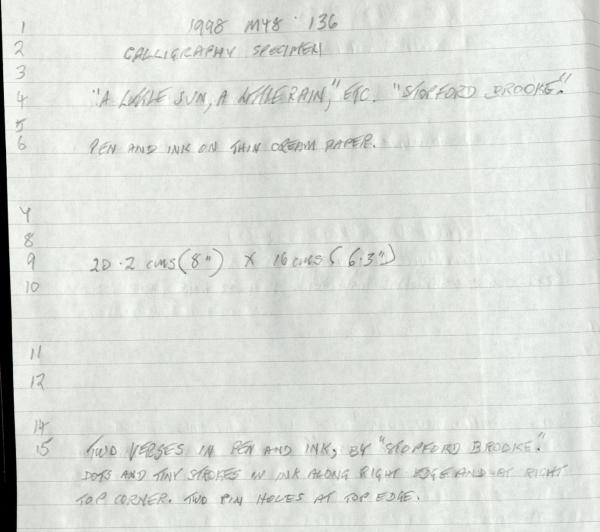 1 1998 M48 · 136
2 CALLIGRAPHY SPECIMEN
3
4 "A LITTLE SUN, A LITTLE RAIN," ETC. "STOPFORD BROOKE."
5
6 PEN AND INK ON THIN CREAM PAPER.
7
8
9 20.2 cms (8") X 16 cms (6.3")
10
11
12
14
15 TWO VERSES IN PEN AND INK, BY "STOPFORD BROOKE".
DOTS AND TINY STROKES IN INK ALONG RIGHT EDGE AND AT RIGHT
TOP CORNER. TWO PIN HOLES AT TOP EDGE.